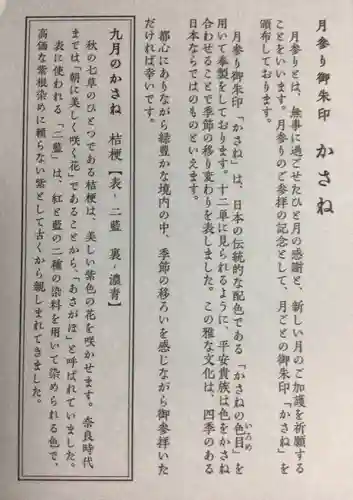 月参り御朱印 かさね
月参りとは、無事に過ごせたひと月の感謝と、新しい月のご加護を祈願する
ことをいいます。月参りのご参拝の記念として、月ごとの御朱印「かさね」を
頒布しております。
月参り御朱印「かさね」は、日本の伝統的な配色である「かさねの色目」を
いろめ
用いて奉製をしております。十二単に見られるように、平安貴族は色をかさね
合わせることで季節の移り変わりを表しました。この雅な文化は、四季のある
日本ならではのものといえます。
都心にありながら緑豊かな境内の中、季節の移ろいを感じながら御参拝いた
だければ幸いです。
九月のかさね 桔梗【表~二藍 裏~濃青】
秋の七草のひとつである桔梗は、美しい紫色の花を咲かせます。奈良時代
までは「朝に美しく咲く花」であることから、「あさがほ」と呼ばれていました。
表に使われる「二藍」は、紅と藍の二種の染料を用いて染められる色で、
高価な紫根染めに頼らない紫として古くから親しまれてきました。